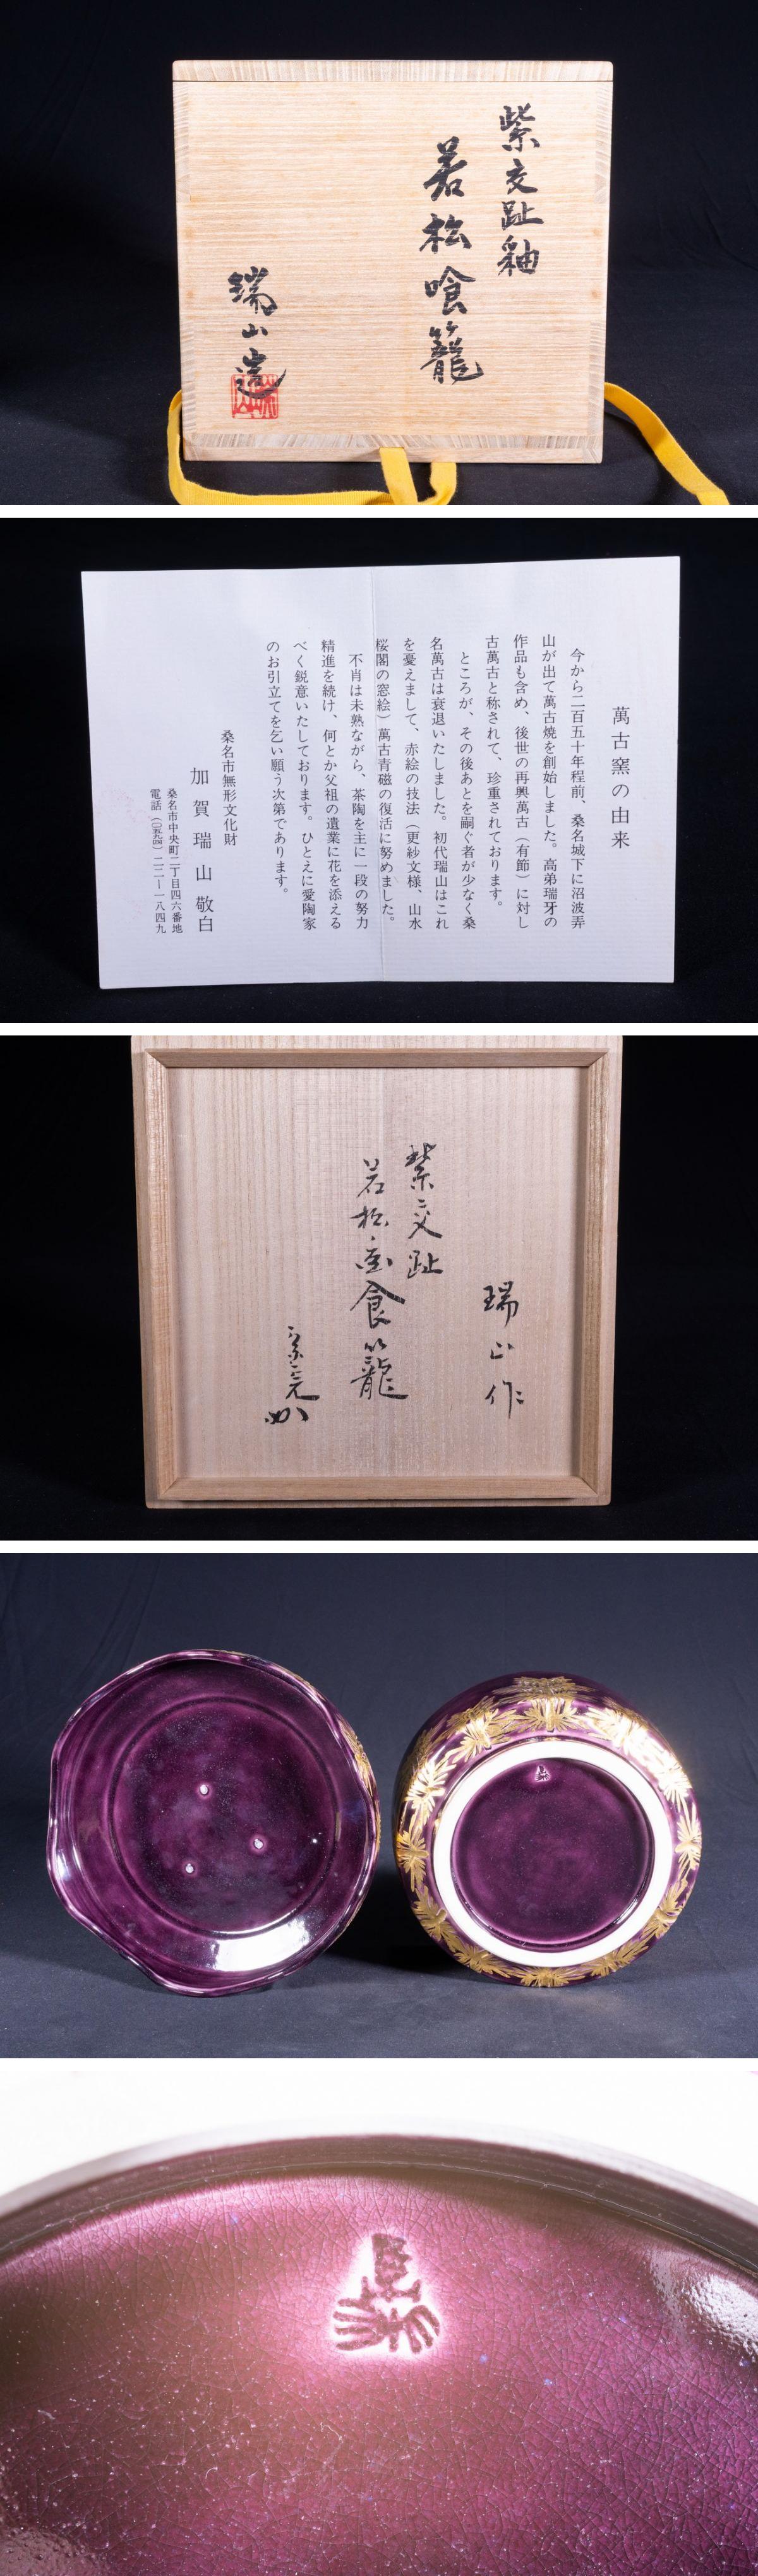 紫交趾釉
若松喰籠
瑞山造
萬古窯の由来
今から二百五十年程前、桑名城下に沼波弄
山が出て萬古焼を創始しました。高弟瑞牙の
作品も含め、後世の再興萬古（有節）に対し
古萬古と称されて、珍重されております。
ところが、その後あとを嗣ぐ者が少なく桑
名萬古は衰退いたしました。初代瑞山はこれ
を憂えまして、赤絵の技法（更紗文様、山水
桜閣の窓絵）萬古青磁の復活に努めました。
不肖は未熟ながら、茶陶を主に一段の努力
精進を続け、何とか父祖の遺業に花を添える
べく鋭意いたしております。ひとえに愛陶家
のお引立てを乞い願う次第であります。
桑名市無形文化財
加賀瑞山敬白
桑名市中央町二丁目四六番地
電話（〇五九四）二二―一八四九
瑞山作
紫交趾
若松画食籠